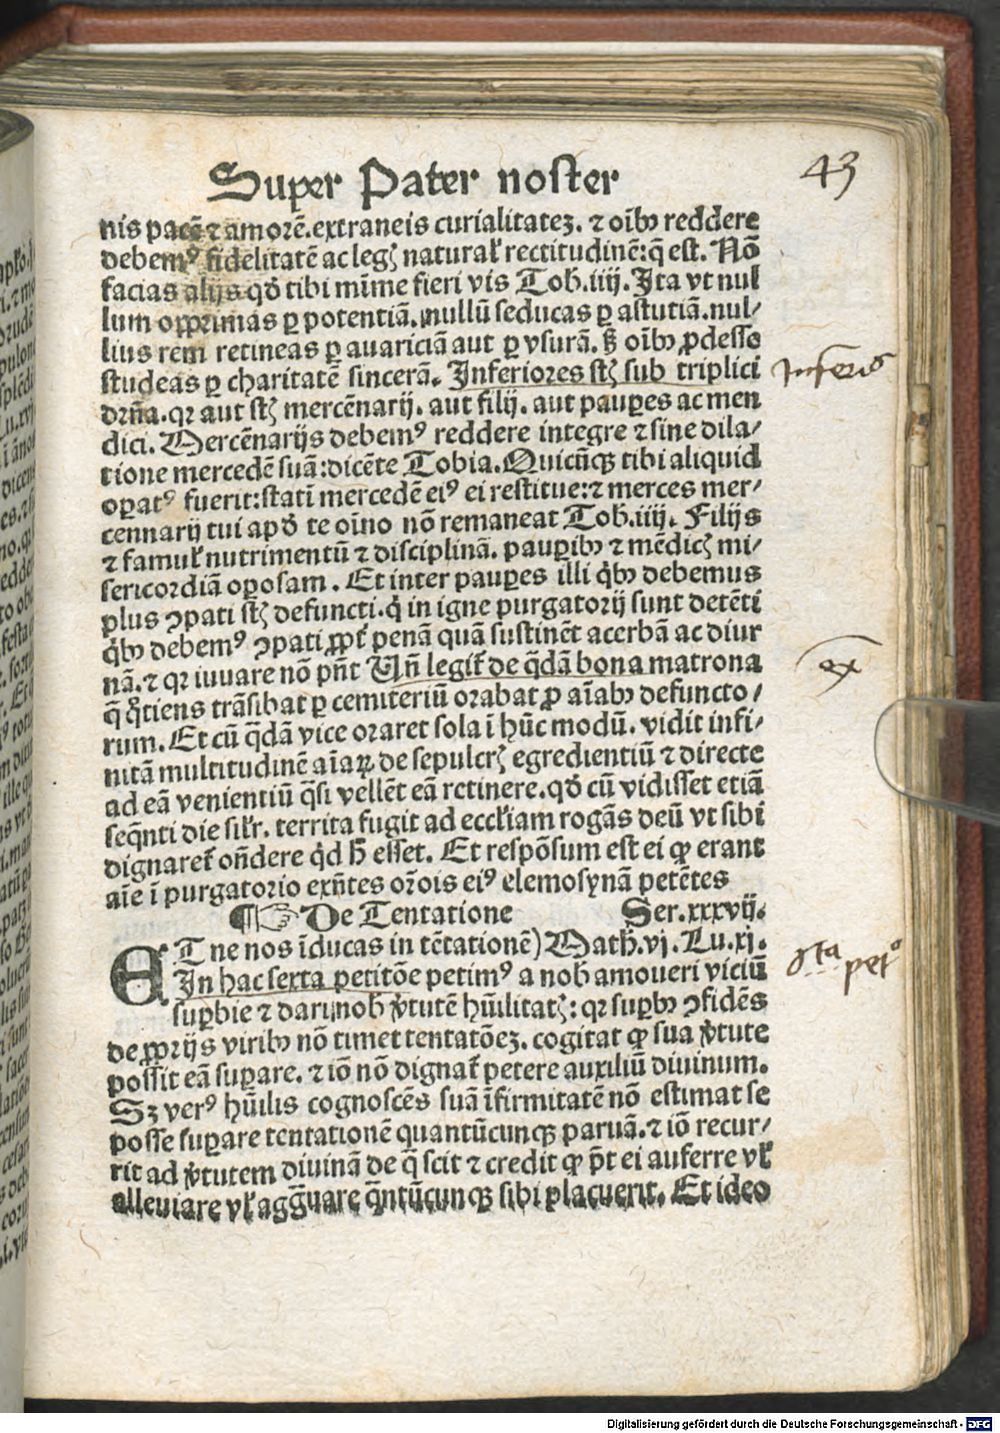 Super Pater noster
43
nis pacē ⁊ amorē.extraneis curialitateꝫ. ⁊ oībꝰ reddere
debemꝰ fidelitatē ac legꝭ natural̓ rectitudinē:q̄ est. Nō
facias alijs qð tibi mīme fieri vis Tob.iiij. Ita vt nul
lum opprimas ꝑ potentiā.nullū seducas ꝑ astutiā.nul/
lius rem retineas ꝑ auariciā aut ꝑ vsurā. sꝫ oībꝰ ꝓdesse
studeas ꝑ charitatē sincerā. Inferiores st̄ sub triplici
Inferiꝰ
drn̄a.qꝛ aut st̄ mercēnarij. aut filij. aut pauꝑes ac men
dici. Mercēnarijs debemꝰ reddere integre ⁊ sine dila/
tione mercedē suā:dicēte Tobia.Quicūqꝫ tibi aliquid
oꝑatꝰ fuerit:statī mercedē eiꝰ ei restitue:⁊ merces mer/
cennarij tui apð te oīno nō remaneat Tob.iiij. Filijs
⁊ famul̓ nutrimentū ⁊ disciplinā. pauꝑibꝰ ⁊ mēdicꝭ mi/
sericordiā oꝑosam. Et inter pauꝑes illi q̇bꝰ debemus
plus ꝯpati st̄ defuncti.q̇ in igne purgatorij sunt detēti
q̇bꝰ debemꝰ ꝯpati ꝓpt̄ penā quā sustinēt acerbā ac diur
nā.⁊ qꝛ iuuare nō pn̄t Un̄ legit̄ de q̄dā bona matrona
ex
q̄ q̊tiens trāsibat ꝑ cemiteriū orabat ꝓ aīabꝰ defuncto/
rum. Et cū q̄dā vice oraret sola ī hūc modū. vidit infi/
nitā multitudinē aīaꝝ de sepulcrꝭ egredientiū ⁊ directe
ad eā venientiū q̄si vellēt eā retinere.qð cū vidisset etiā
seq̄nti die sil̓r. territa fugit ad eccl̓iam rogās deū vt sibi
dignaret̄ on̄dere q̇d h̄ esset. Et respōsum est ei ꝙ erant
aīe ī purgatorio exn̄tes or̄ois eiꝰ elemosynā petētes
¶☞ De Tentatione Ser.xxxvij.
ET ne nos īducas in tētationē) Math̄.vj. Lu.xj.
In hac sexta petitōe petimꝰ a nob̄ amoueri viciū
6ta pet°
suꝑbie ⁊ dari nob̄ v̓tutē hūilitatꝭ: qꝛ suꝑbꝰ ꝯfidēs
de ꝓprijs viribꝰ nō timet tentatōeꝫ. cogitat ꝙ sua v̓tute
possit eā suꝑare. ⁊ iō nō dignat̄ petere auxiliū diuinum.
Sꝫ verꝰ hūilis cognoscēs suā īfirmitatē nō estimat se
posse suꝑare tentationē quantūcunqꝫ paruā.⁊ iō recur/
rit ad v̓tutem diuinā de q̄ scit ⁊ credit ꝙ p̄t ei auferre vl̓
alleuiare vl̓ agg̃uare q̄ntūcunqꝫ sibi placuerit. Et ideo
Digitalisierung gefördert durch die Deutsche Forschungsgemeinschaft - DFG